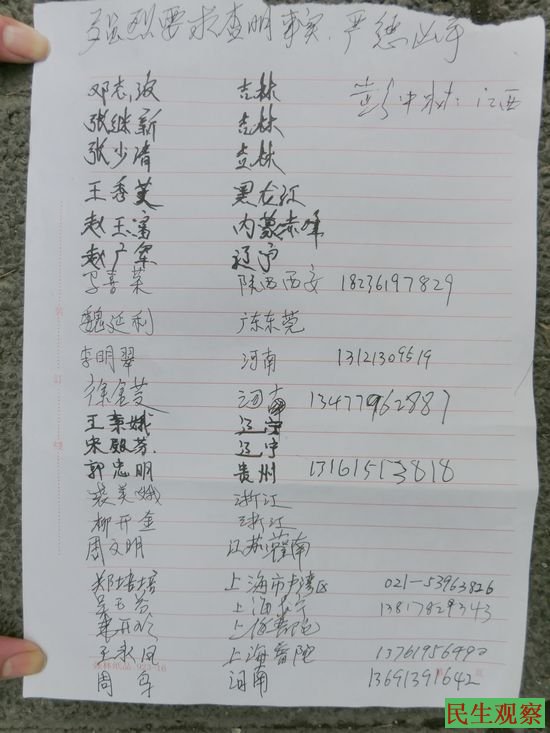 强烈要求查明事实.严惩凶手
邓志波 吉林 彭中林:江西
张继新 吉林
张少清 吉林
王季芙 黑龙江
赵玉富 内蒙赤峰
赵广军 辽宁
马喜荣 陕西西安 18236197829
魏延利 广东东莞
李明翠 河南 13121309519
徐金芝 河南 13477962887
王素娥 辽宁
宋殿芬 辽宁
郭忠明 贵州 13161513818
裘美娥 浙江
柳开金 浙江
周文明 江苏灌南
郑培培 上海市卢湾区 021-53963826
吴玉芬 上海长宁 13817829343
上海普陀
王永凤 上海普陀 13761956490
周军 河南 13691391642
民生观察